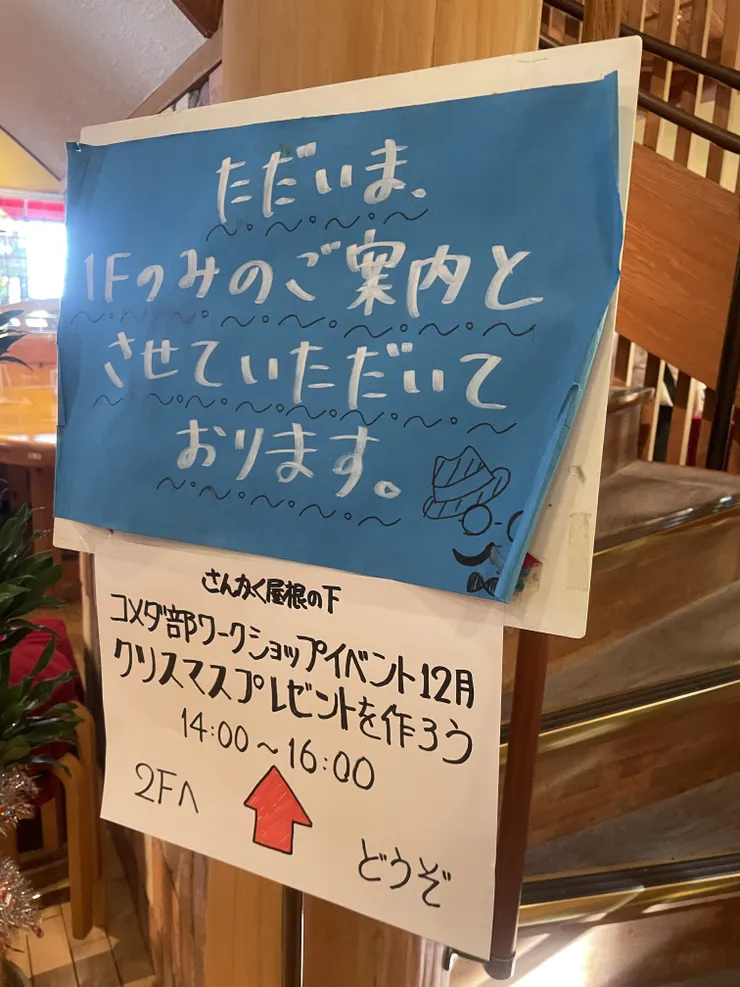 ただいま、
1Fのみのご案内と
させていただいて
おります。
さんかく屋根の下
コメダ部ワークショップイベント12月
クリスマスプレゼントを作ろう
14:00～16:00
2Fへ
どうぞ